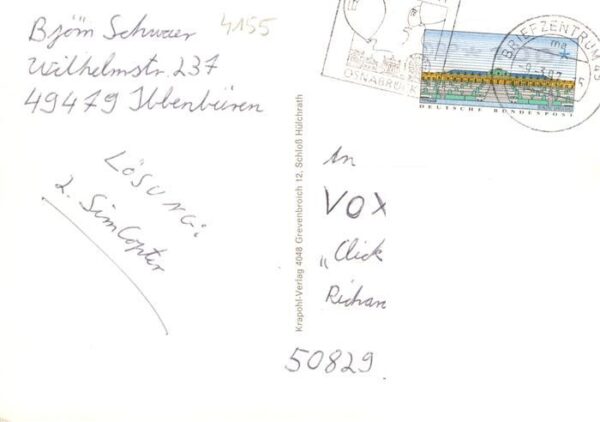 Björn Schwaer
Wilhelmstr. 237
49479 Ibbenbüren
4155
LÖSUNG:
2. SimCopter
Krapohl-Verlag 4048 Grevenbroich 12, Schloß Hülchrath
OSNABRÜCK
BRIEFZENTRUM 49
mg
DEUTSCHE BUNDESPOST
An
VOX
„Click
Richar
50829